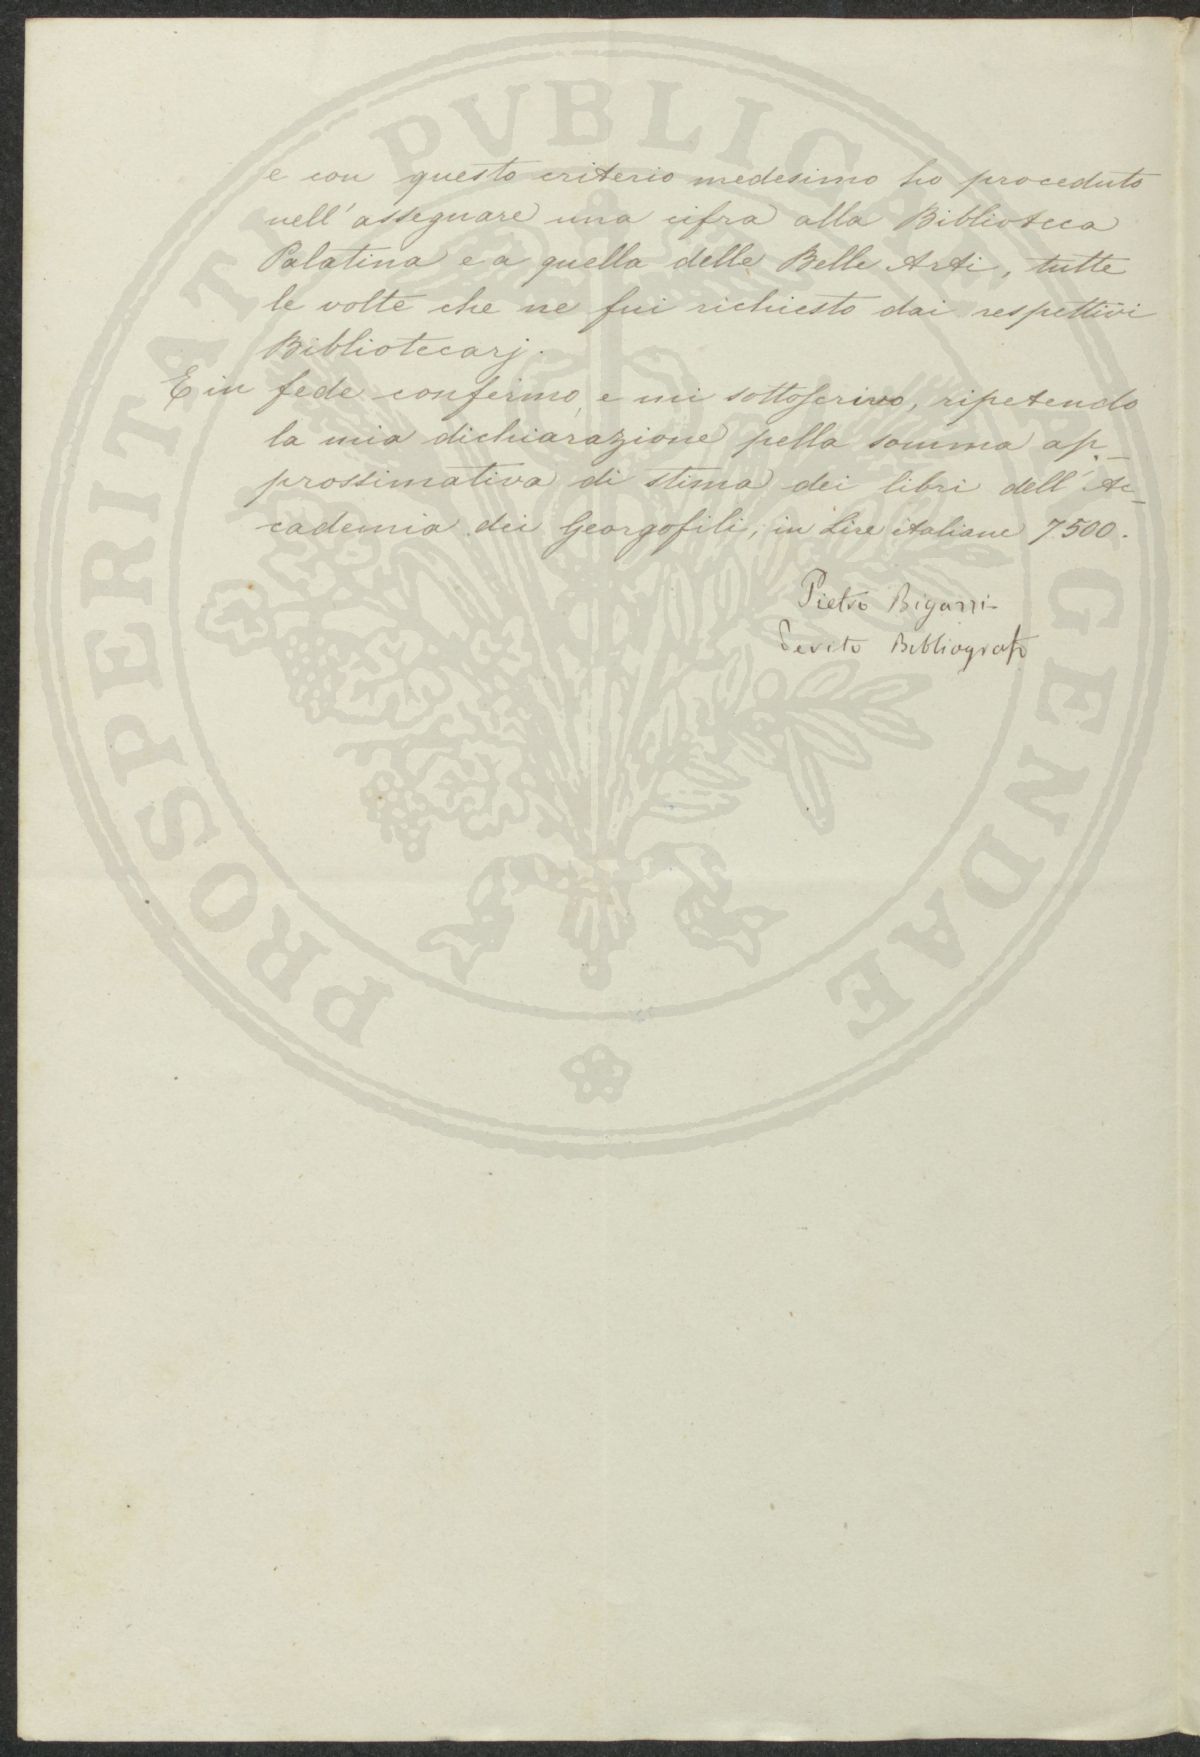 e con questo criterio medesimo ho proceduto
nell'assegnare una cifra alla Biblioteca
Palatina e a quella delle Belle Arti, tutte
le volte che ne fui richiesto dai respettivi
Bibliotecarj.
E in fede confermo, e mi sottoscrivo, ripetendo
la mia dichiarazione pella somma ap-
prossimativa di stima dei libri dell'Ac-
cademia dei Georgofili, in Lire italiane 7500.
Pietro Bigazzi
Perito Bibliografo
PROSPERITATI PVBLICAE AVGENDAE